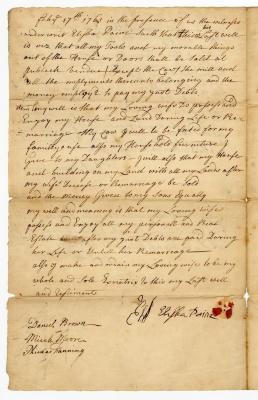 17th 1761 in the presence of us the witnesses
Elisha Paine that this Last will
is viz that all my Tools and my movable things
out of the House or Doors Shall be Sold at
publick Vendue Except the Cow & the mill and
all the impliments thereunto belonging and the
money imployd to pay my Just Debts
my will is that my Loving wife Do possess and
Enjoy my House and Land During Life or Re
marriage My Cow I will to be for my
family use also my House hold furniture I
Give to my Daughters I will also that my House
and building on my Land with all my Land after
my wifes Decease or Remarriage be Sold
and the Money Given to my Sons Equaly
my will and meaning is that my Loving wife
posess and Enjoy all my personall and Real
Estate after my Just Debts are paid During
her Life or Untill her Remarriage
also I make and my Loving wife to be my
whole and Sole Executrix to this my Last will
and testiment
Elisha Paine
Daniel Brown
Micah Moore
Thomas Fanning